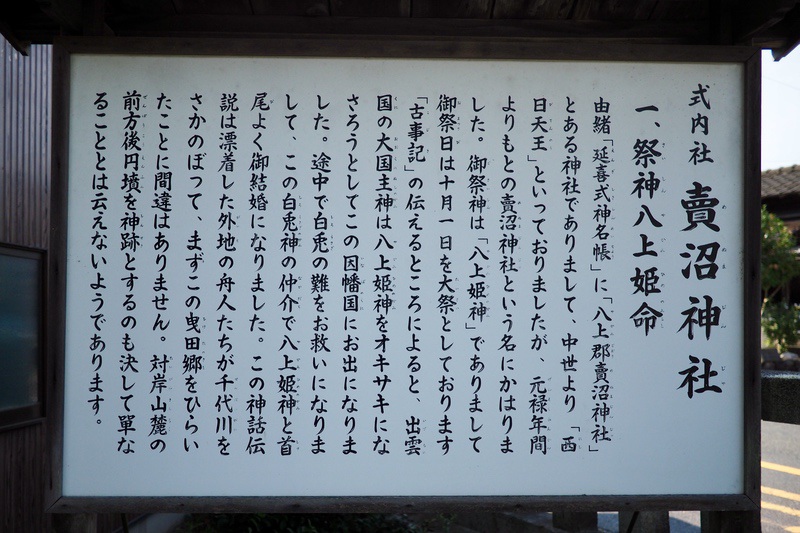 式内社 賣沼神社
一、祭神八上姫命
由緒「延喜式神名帳」に「八上郡賣沼神社」
とある神社でありまして、中世より「西
日天王」といっておりましたが、元禄年間
よりもとの賣沼神社という名にかはりま
した。御祭神は「八上姫神」でありまして
御祭日は十月一日を大祭としております
「古事記」の伝えるところによると、出雲
国の大国主神は八上姫神をオキサキにな
さろうとしてこの因幡国にお出になりま
した。途中で白兎の難をお救いになりま
して、この白兎神の仲介で八上姫神と首
尾よく御結婚になりました。この神話伝
説は漂着した外地の舟人たちが千代川を
さかのぼって、まずこの曳田郷をひらい
たことに間違はありません。対岸山麓の
前方後円墳を神跡とするのも決して単な
ることとは云えないようであります。